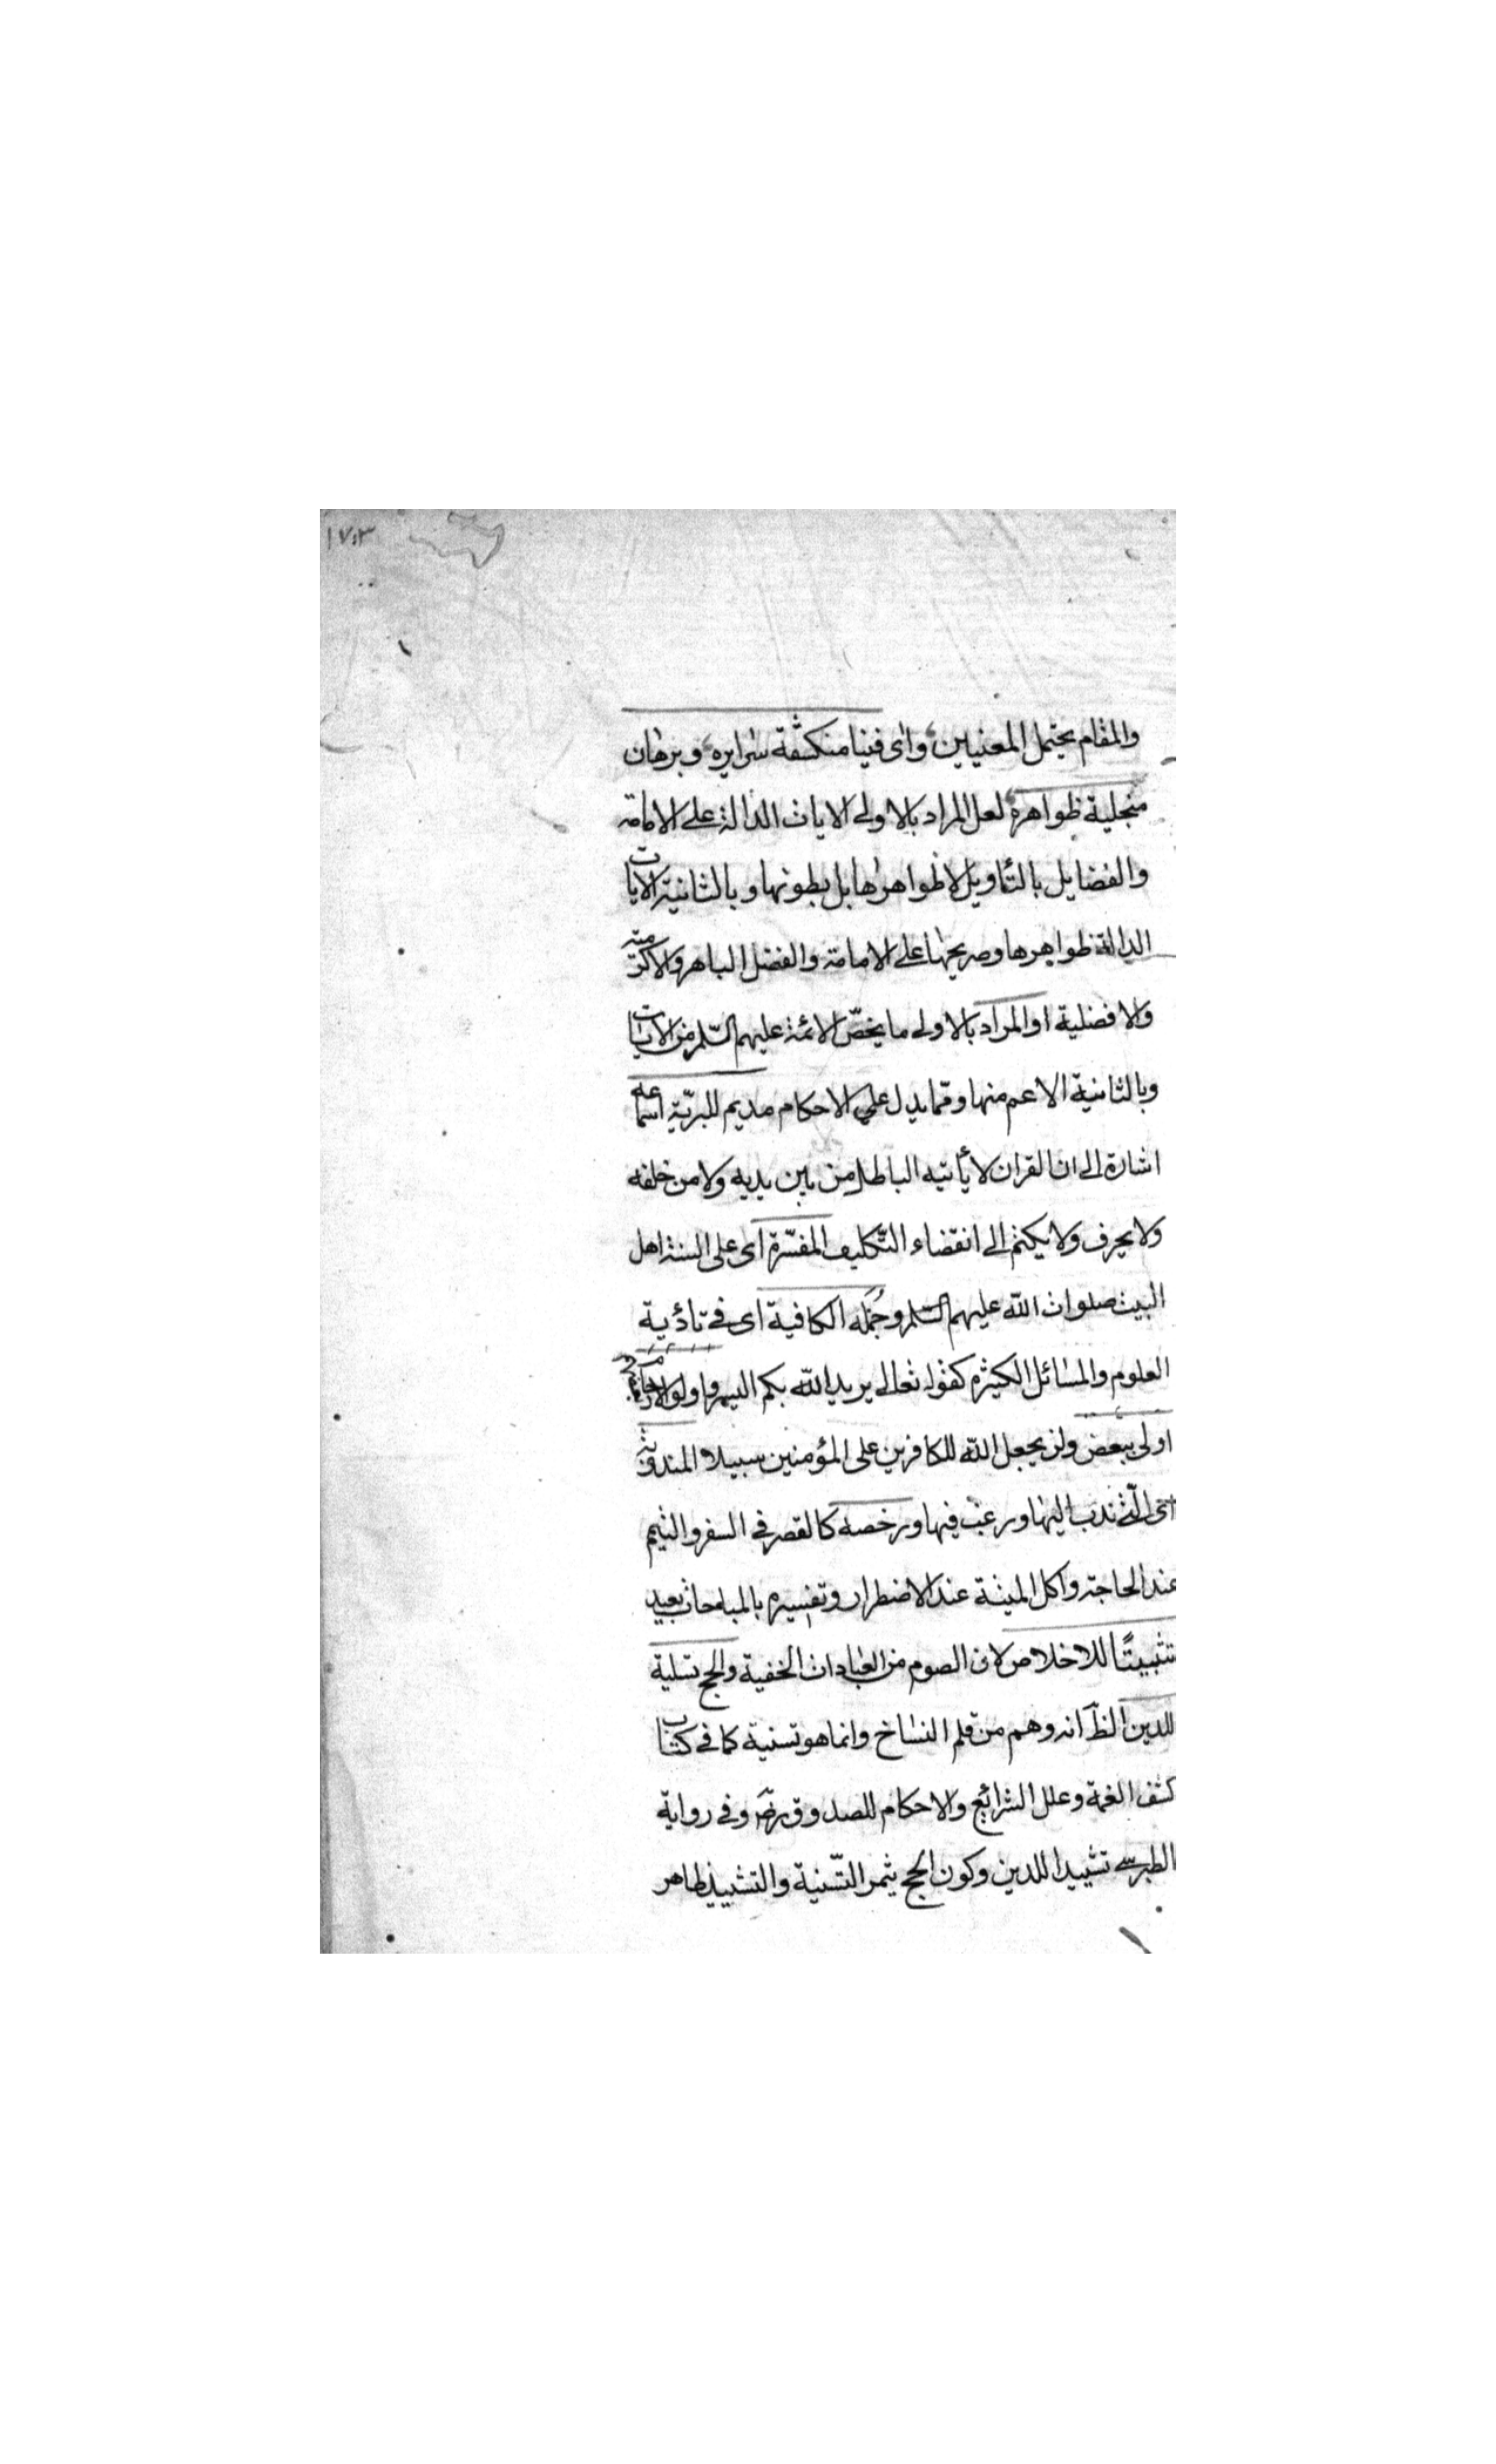 ١٧٣
والمقام يحتمل المعنيين، وآى فينا منكشفة سرايره، وبرهان
منجلية ظواهره، لعل المراد بالاولى الايات الدالة على الامامة
والفضايل بالتأويل لا ظواهرها بل بطونها وبالثانية الايات
الدالة ظواهرها وصريحها على الامامة والفضل الباهر والاكرمية
والافضلية او المراد بالاولى ما يخصّ الائمة عليهم السّلم من الايات
وبالثانية الاعم منها وممّا يدل على الاحكام مديم للبريّة استماعه
اشارة الى ان القران لا يأتيه الباطل من بين يديه ولا من خلفه
ولا يحرف ولا يكتم الى انقضاء التّكليف المفسّرة اى على السنة اهل
البيت صلوات الله عليهم السّلم وجُمَله الكافية اى فى تأدية
العلوم والمسائل الكثيرة كقوله تعالى يريد الله بكم اليسر واولوا الارحام بعضهم
اولى ببعض ولن يجعل الله للكافرين على المؤمنين سبيلا المندوبة
اى الّتى ندب اليها ورغب فيها ورخصه كالقصر فى السفر والتيمم
عند الحاجة واكل الميتة عند الاضطرار وتفسيره بالمباحات بعيد
تثبيتًا للاخلاص لان الصوم من العبادات الخفية والحج تسلية
للدين الظّ انه وهم من قلم النساخ وانما هو تسنية كما فى كتاب
كشف الغمة وعلل الشرائع والاحكام للصدوق رضَ وفى رواية
الطبرسى تشييدا للدين وكون الحج يثمر التّسنية والتشييد ظاهر